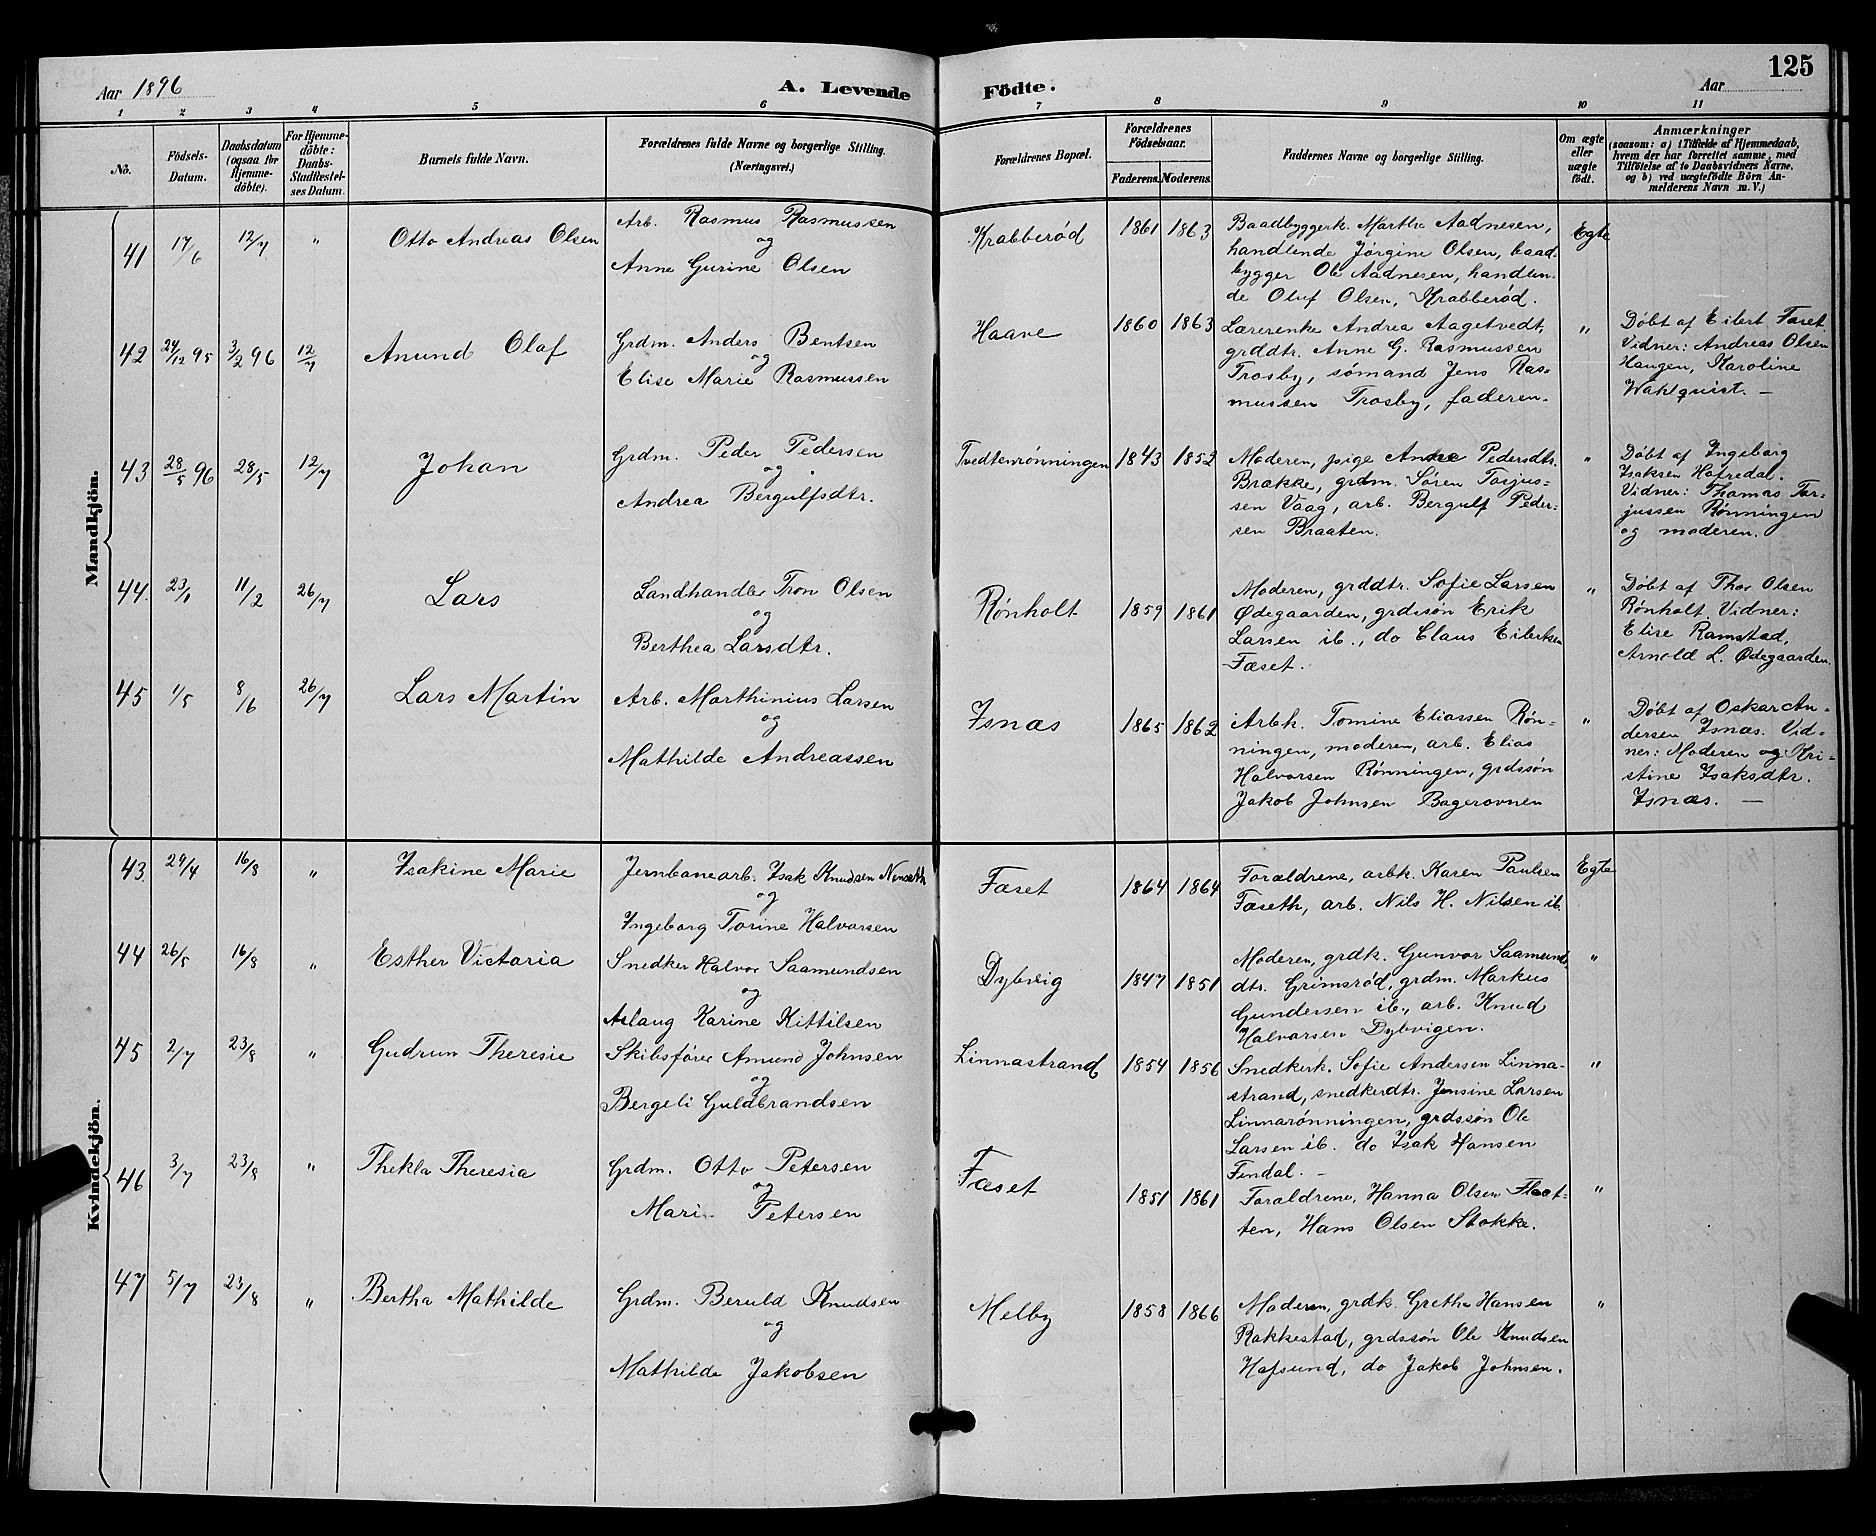 Aar 1896
A. Levende Födte.
Aar
125
1 2 3 4 5 6 7 8 9 10 11
No.
Födsels-Datum.
Daabsdatum (ogsaa for Hjemme-döbte).
For Hjemme-döbte: Daabs-Stadfæstel-ses Datum.
Barnets fulde Navn.
Forældrenes fulde Navne og borgerlige Stilling. (Næringsvei.)
Forældrenes Bopæl.
Forældrenes Födselsaar.
Faderens. Moderens.
Faddernes Navne og borgerlige Stilling.
Om ægte eller uægte födt.
Anmærkninger
(saasom: a) i Tilfælde af Hjemmedaab,
hvem der har forrettet samme, med
Tilföielse af to Daabsvidners Navne,
og b) ved uægtefödte Börn An-
melderens Navn m. V.)
Mandkjön.
41 17/6 12/7 " Otto Andreas Olsen
Arb. Rasmus Rasmussen
og
Anne Gurine Olsen
Krabberød 1861 1863
Baadbyggerk. Marthe Aadnesen,
handlende Jørgine Olsen, baad-
bygger Ole Aadnesen, handlen-
de Oluf Olsen, Krabberød.
Egte
42 24/12 95 3/2 96 12/7 Anund Olaf
Grdm. Anders Bentsen
og
Elise Marie Rasmussen
Haave 1860 1863
Lærerenke Andrea Aagetvedt,
grddtr. Anne G. Rasmussen
Trosby, sømand Jens Ras-
mussen Trosby, faderen.
"
Døbt af Eilert Faset.
Vidner: Andreas Olsen
Haugen, Karoline
Wahlquist. —
43 28/5 96 28/5 12/7 Johan
Grdm. Peder Pedersen
og
Andrea Bergulfsdtr.
Tvedtenrønningen 1843 1852
Moderen, pige Anne Pedersdtr.
Brække, grdm. Søren Torjus-
sen Vaag, arb. Bergulf Peder-
sen Braaten.
"
Døbt af Ingeborg
Isaksen Hafredal.
Vidner: Thomas Tor-
jussen Rønningen
og moderen.
44. 23/1 11/2 26/7 Lars
Landhandler Tron Olsen
og
Berthea Larsdtr.
Rønholt 1859 1861
Moderen, grddtr. Sofie Larsen
Ødegaarden, grdssøn Erik
Larsen ib., do Claus Eilertsen
Fæset.
"
Døbt af Thor Olsen
Rønholt. Vidner:
Elise Ramstad,
Arnold L. Ødegaarden.
45 1/5 8/6 26/7 Lars Martin
Arb. Marthinius Larsen
og
Mathilde Andreassen
Isnæs 1865 1862
Arbk. Tomine Eliassen Røn-
ningen, moderen, arb. Elias
Halvorsen Rønningen, grdssøn
Jakob Johnsen Bagerovnen
"
Døbt af Oskar An-
dersen Isnæs. Vid-
ner: Moderen og Kri-
stine Isaksdtr.
Isnæs. —
Kvindekjön.
43. 29/4 16/8 " Isakine Marie
Jernbanearb. Isak Knudsen Nenseth
og
Ingeborg Torine Halvorsen
Fæset 1864 1864
Forældrene, arbk. Karen Paulsen
Fæseth, arb. Nils H. Nilsen ib.
Egte
44 26/5 16/8 " Esther Victoria
Snedker Halvor Saamundsen
og
Aslaug Karine Kittilsen
Dybvig 1847 1851
Moderen, grdk. Gunvor Saamunds-
dtr. Grimsrød, grdm. Markus
Gundersen ib., arb. Knud
Halvorsen Dybvigen.
"
45 2/7 23/8 " Gudrun Theresie
Skibsfører Amund Johnsen
og
Bergeli Guldbrandsen
Linnastrand 1854 1856
Snedkerk. Sofie Andersen Linna-
strand, snedkerdtr. Jensine Larsen
Linnarønningen, grdssøn Ole
Larsen ib. do Isak Hansen
Findal. —
"
46 3/7 23/8 " Thekla Theresia
Grdm. Otto Petersen
og
Mari Petersen
Fæset 1851 1861
Forældrene, Hanna Olsen Flaat-
ten, Hans Olsen Stokke.
"
47 5/7 23/8 " Bertha Mathilde
Grdm. Beruld Knudsen
og
Mathilde Jakobsen
Melby 1858 1866
Moderen, grdk. Grethe Hansen
Rakkestad, grdssøn Ole Knudsen
Hafsund, do Jakob Johnsen.
"